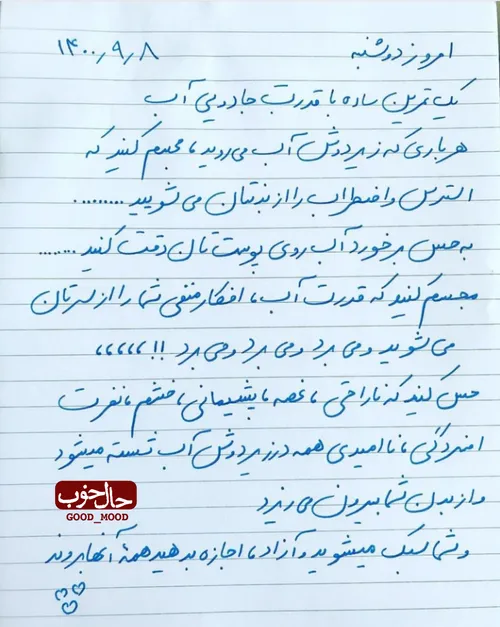 امروز دوشنبه ۱۴۰۰٫۹٫۸
یک تمرین ساده با قدرت جادویی آب
هر باری که زیر دوش آب می‌روید، مجسم کنید که
استرس و اضطراب را از بدنتان می‌شویید .........
به حس برخورد آب روی پوست تان دقت کنید ........
مجسم کنید که قدرت آب، افکار منفی شما را از سرتان
می‌شوید و می برد و می برد و می برد !!! ،،،،،،
حس کنید که ناراحتی، غصه، پشیمانی، خشم، نفرت
افسردگی، ناامیدی همه در زیر دوش آب شسته میشود
و از بدن شما بیرون می‌ریزد
حال خوب
GOOD_MOOD
و شما سبک میشوید و آزاد، اجازه بدهید همهٔ آنها بروند